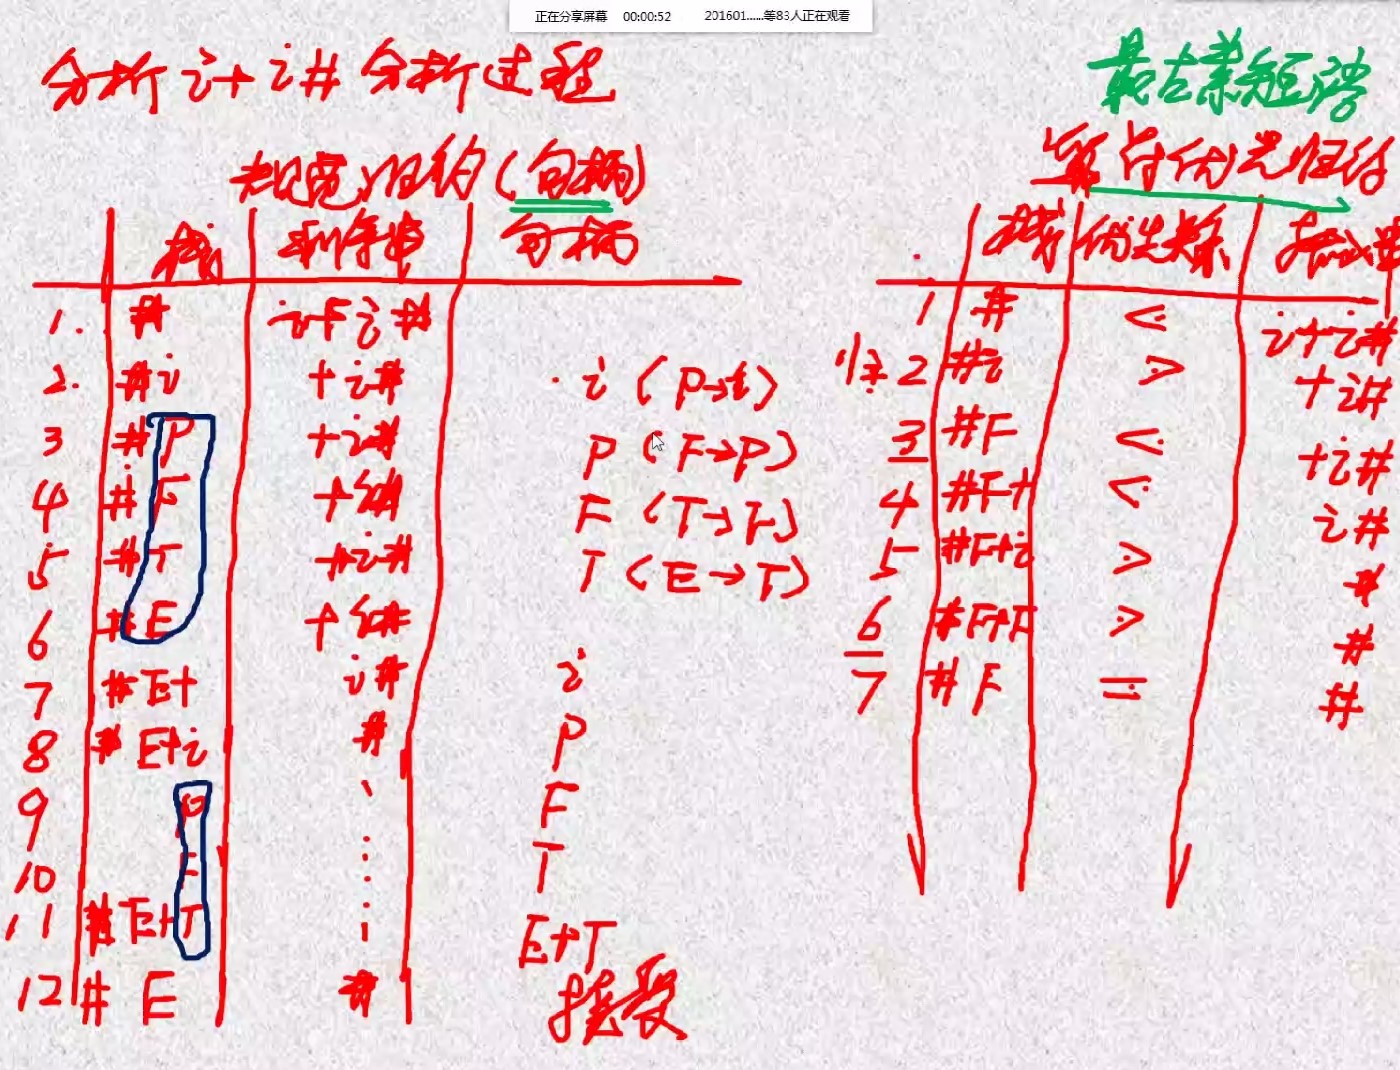 正在分享屏幕 00:00:52 201601......等83人正在观看
分析 i+i# 分析过程
最左素短语
规范归约(句柄)
算符优先归约
栈 剩余串 句柄
栈 优先关系
1. # i+i#
2. #i +i# i (P→i)
3 #P +i# P (F→P)
4 #F +i# F (T→F)
5 #T +i# T (E→T)
6 #E +i#
7 #E+ i# i
8 #E+i # P
9 P F
10 F T
11 #E+T E+T
12 #E # 接受
1 # < i+i#
归 2 #i > +i#
3 #F < +i#
4 #F+ < i#
5 #F+i > #
6 #F+F > #
7 #F = #